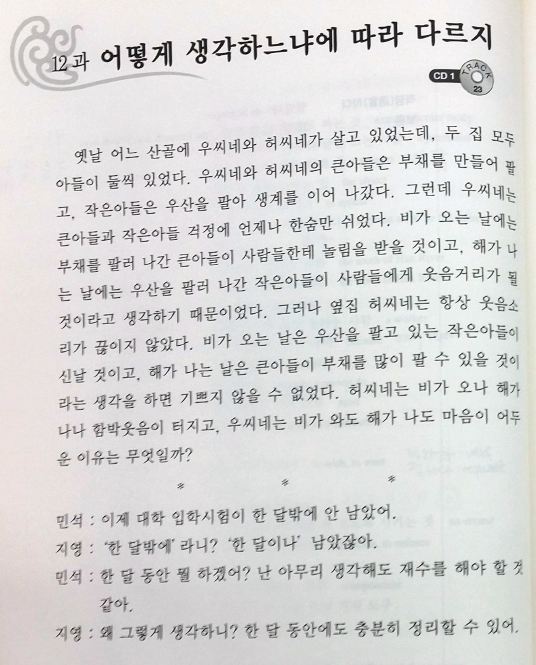 12과 어떻게 생각하느냐에 따라 다르지
CD 1 TRACK 23
옛날 어느 산골에 우씨네와 허씨네가 살고 있었는데, 두 집 모두
아들이 둘씩 있었다. 우씨네와 허씨네의 큰아들은 부채를 만들어 팔
고, 작은아들은 우산을 팔아 생계를 이어 나갔다. 그런데 우씨네는
큰아들과 작은아들 걱정에 언제나 한숨만 쉬었다. 비가 오는 날에는
부채를 팔러 나간 큰아들이 사람들한테 놀림을 받을 것이고, 해가 나
는 날에는 우산을 팔러 나간 작은아들이 사람들에게 웃음거리가 될
것이라고 생각하기 때문이었다. 그러나 옆집 허씨네는 항상 웃음소
리가 끊이지 않았다. 비가 오는 날은 우산을 팔고 있는 작은아들이
신날 것이고, 해가 나는 날은 큰아들이 부채를 많이 팔 수 있을 것이
라는 생각을 하면 기쁘지 않을 수 없었다. 허씨네는 비가 오나 해가
나나 함박웃음이 터지고, 우씨네는 비가 와도 해가 나도 마음이 어두
운 이유는 무엇일까?
* * *
민석 : 이제 대학 입학시험이 한 달밖에 안 남았어.
지영 : ‘한 달밖에’ 라니? ‘한 달이나’ 남았잖아.
민석 : 한 달 동안 뭘 하겠어? 난 아무리 생각해도 재수를 해야 할 것
같아.
지영 : 왜 그렇게 생각하니? 한 달 동안에도 충분히 정리할 수 있어.